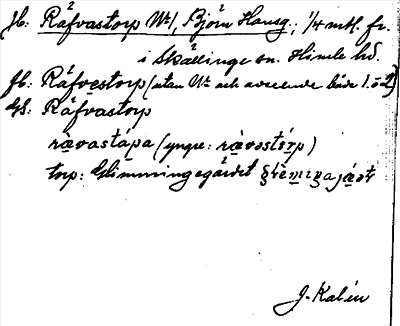 Jb: Råfvastorp No 1, Björn Hansg.; 1/4 mtl. fr.
i Skällinge sn. Himle hd.
Jb: Råfvestorp (utan No och avseende både 1 o 2)
GS: Råfvastorp
råvastápa (yngre: råvastórp)
torp: Glimmringegärdet
J. Kalén